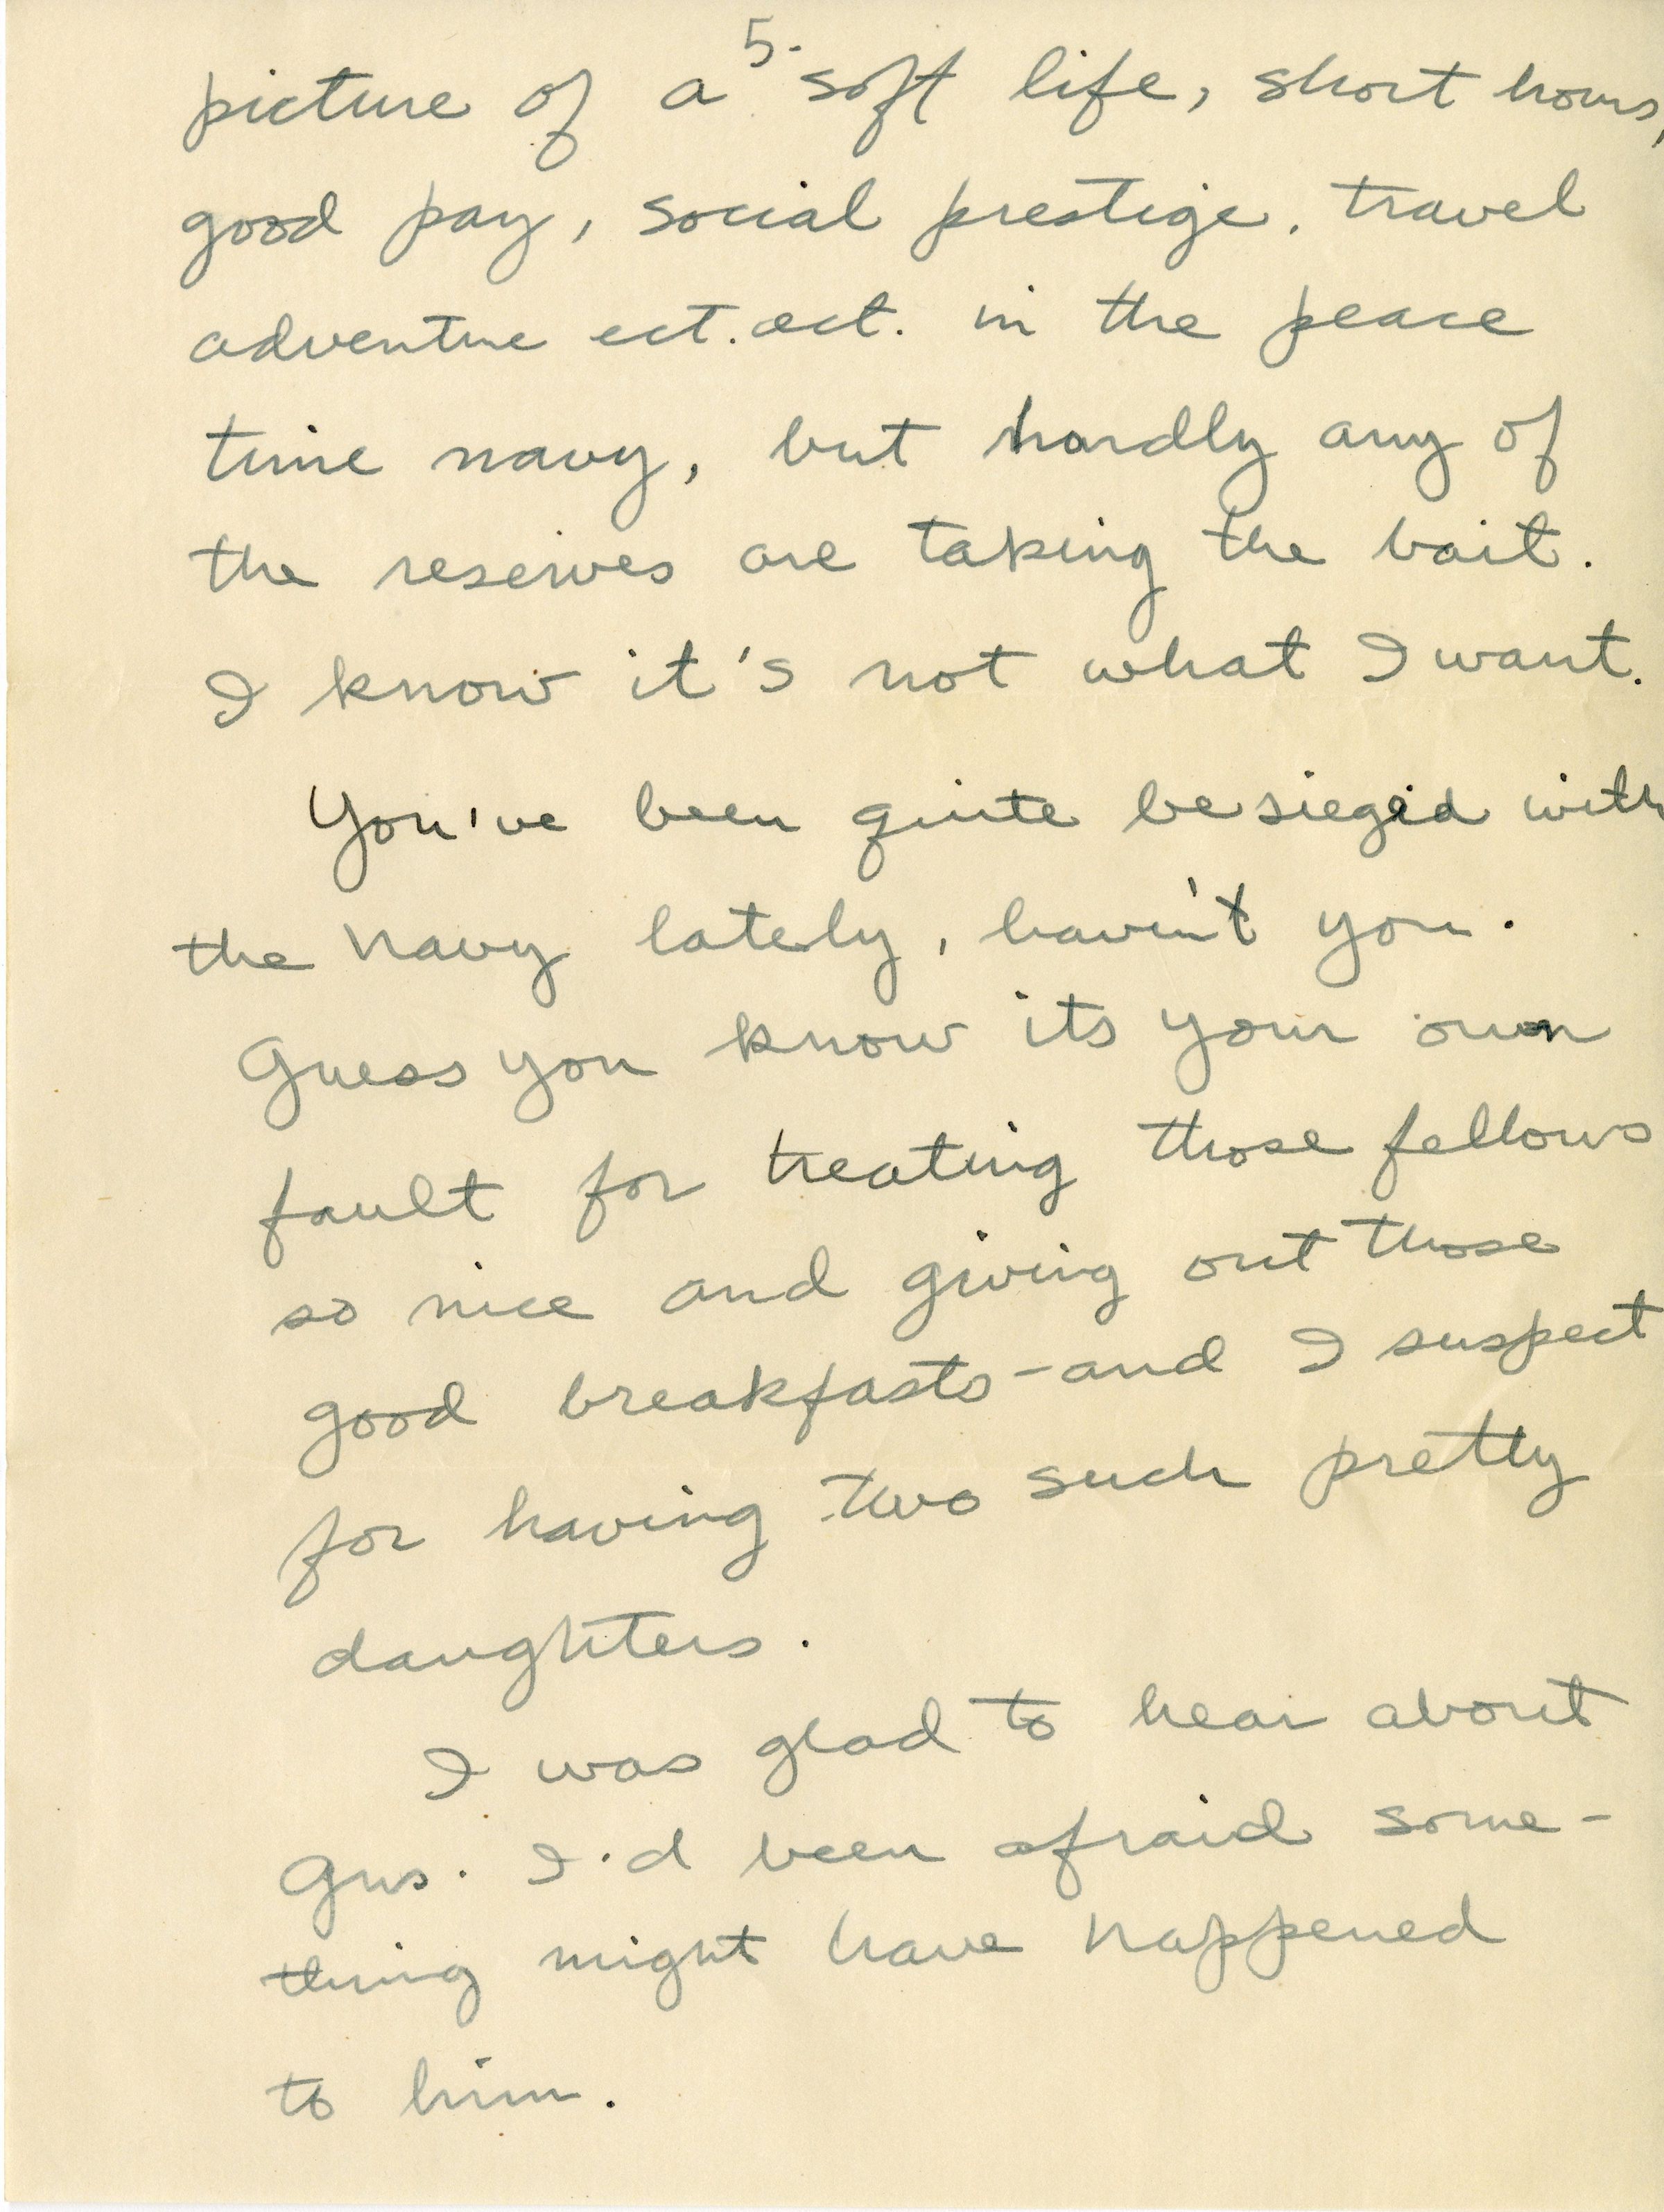 5.
picture of a soft life, short hours,
good pay, social prestige, travel
adventure ect. ect. in the peace
time navy, but hardly any of
the reserves are taking the bait.
I know it's not what I want.
You've been quite besieged with
the navy lately, haven't you.
Guess you know its your own
fault for treating those fellows
so nice and giving out those
good breakfasts - and I suspect
for having two such pretty
daughters.
I was glad to hear about
Gus. I'd been afraid some-
thing might have happened
to him.